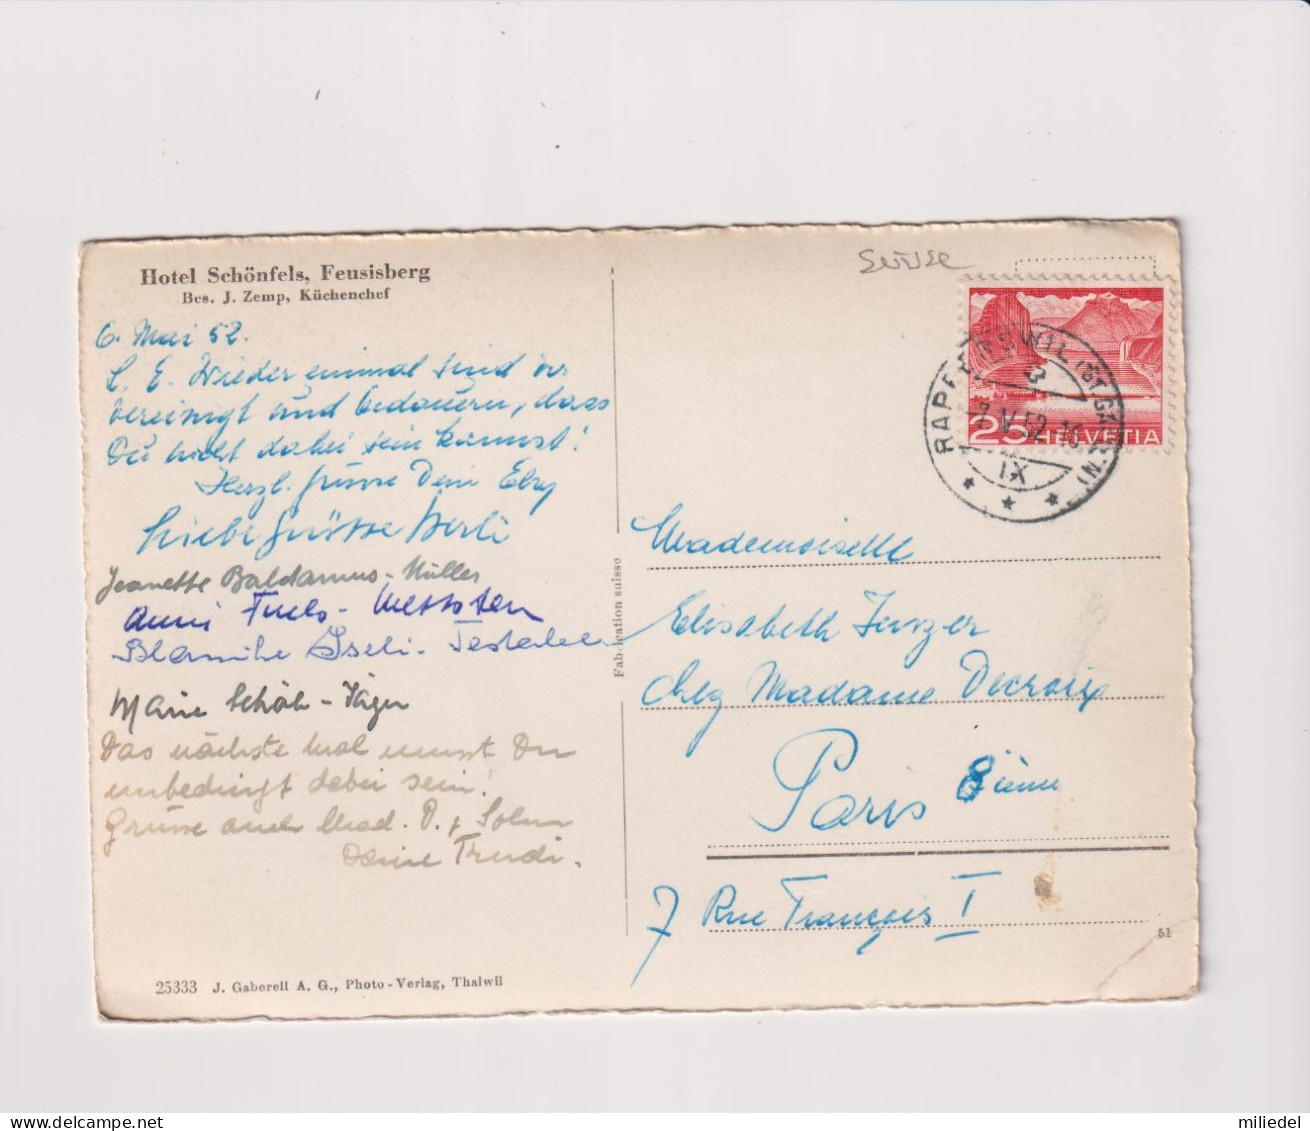 Hotel Schönfels, Feusisberg
Bes. J. Zemp, Küchenchef
6. Mai 52.
L. E. Wieder einmal sind wir
vereinigt und bedauern, dass
Du nicht dabei sein kannst!
Herzl. Grüsse Dein
Liebe Grüsse Berli
Jeanette Baldamus-Müller
Anni Fuchs-
Blanche Iseli-
Marie Schäh-Jäger
Das nächste Mal musst Du
unbedingt dabei sein!
Grüsse auch Mad. D. + Sohn
Deine Trudi.
25333 J. Gaberell A. G., Photo-Verlag, Thalwil
Fabrication suisse
Suisse
25 HELVETIA
RAPPERSWIL (ST. GALLEN)
3
7.V.52.16
IX
Mademoiselle
Elisabeth Jenzer
chez Madame Decroix
Paris 8ième
7 Rue François I
51
miliedel